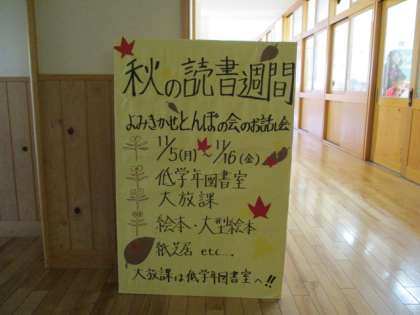 秋の読書週間
よみきかせとんぼの会のお話し会
11/5(月)～11/16(金)
低学年図書室
大放課
絵本・大型絵本
紙芝居 etc...
大放課は低学年図書室へ!!